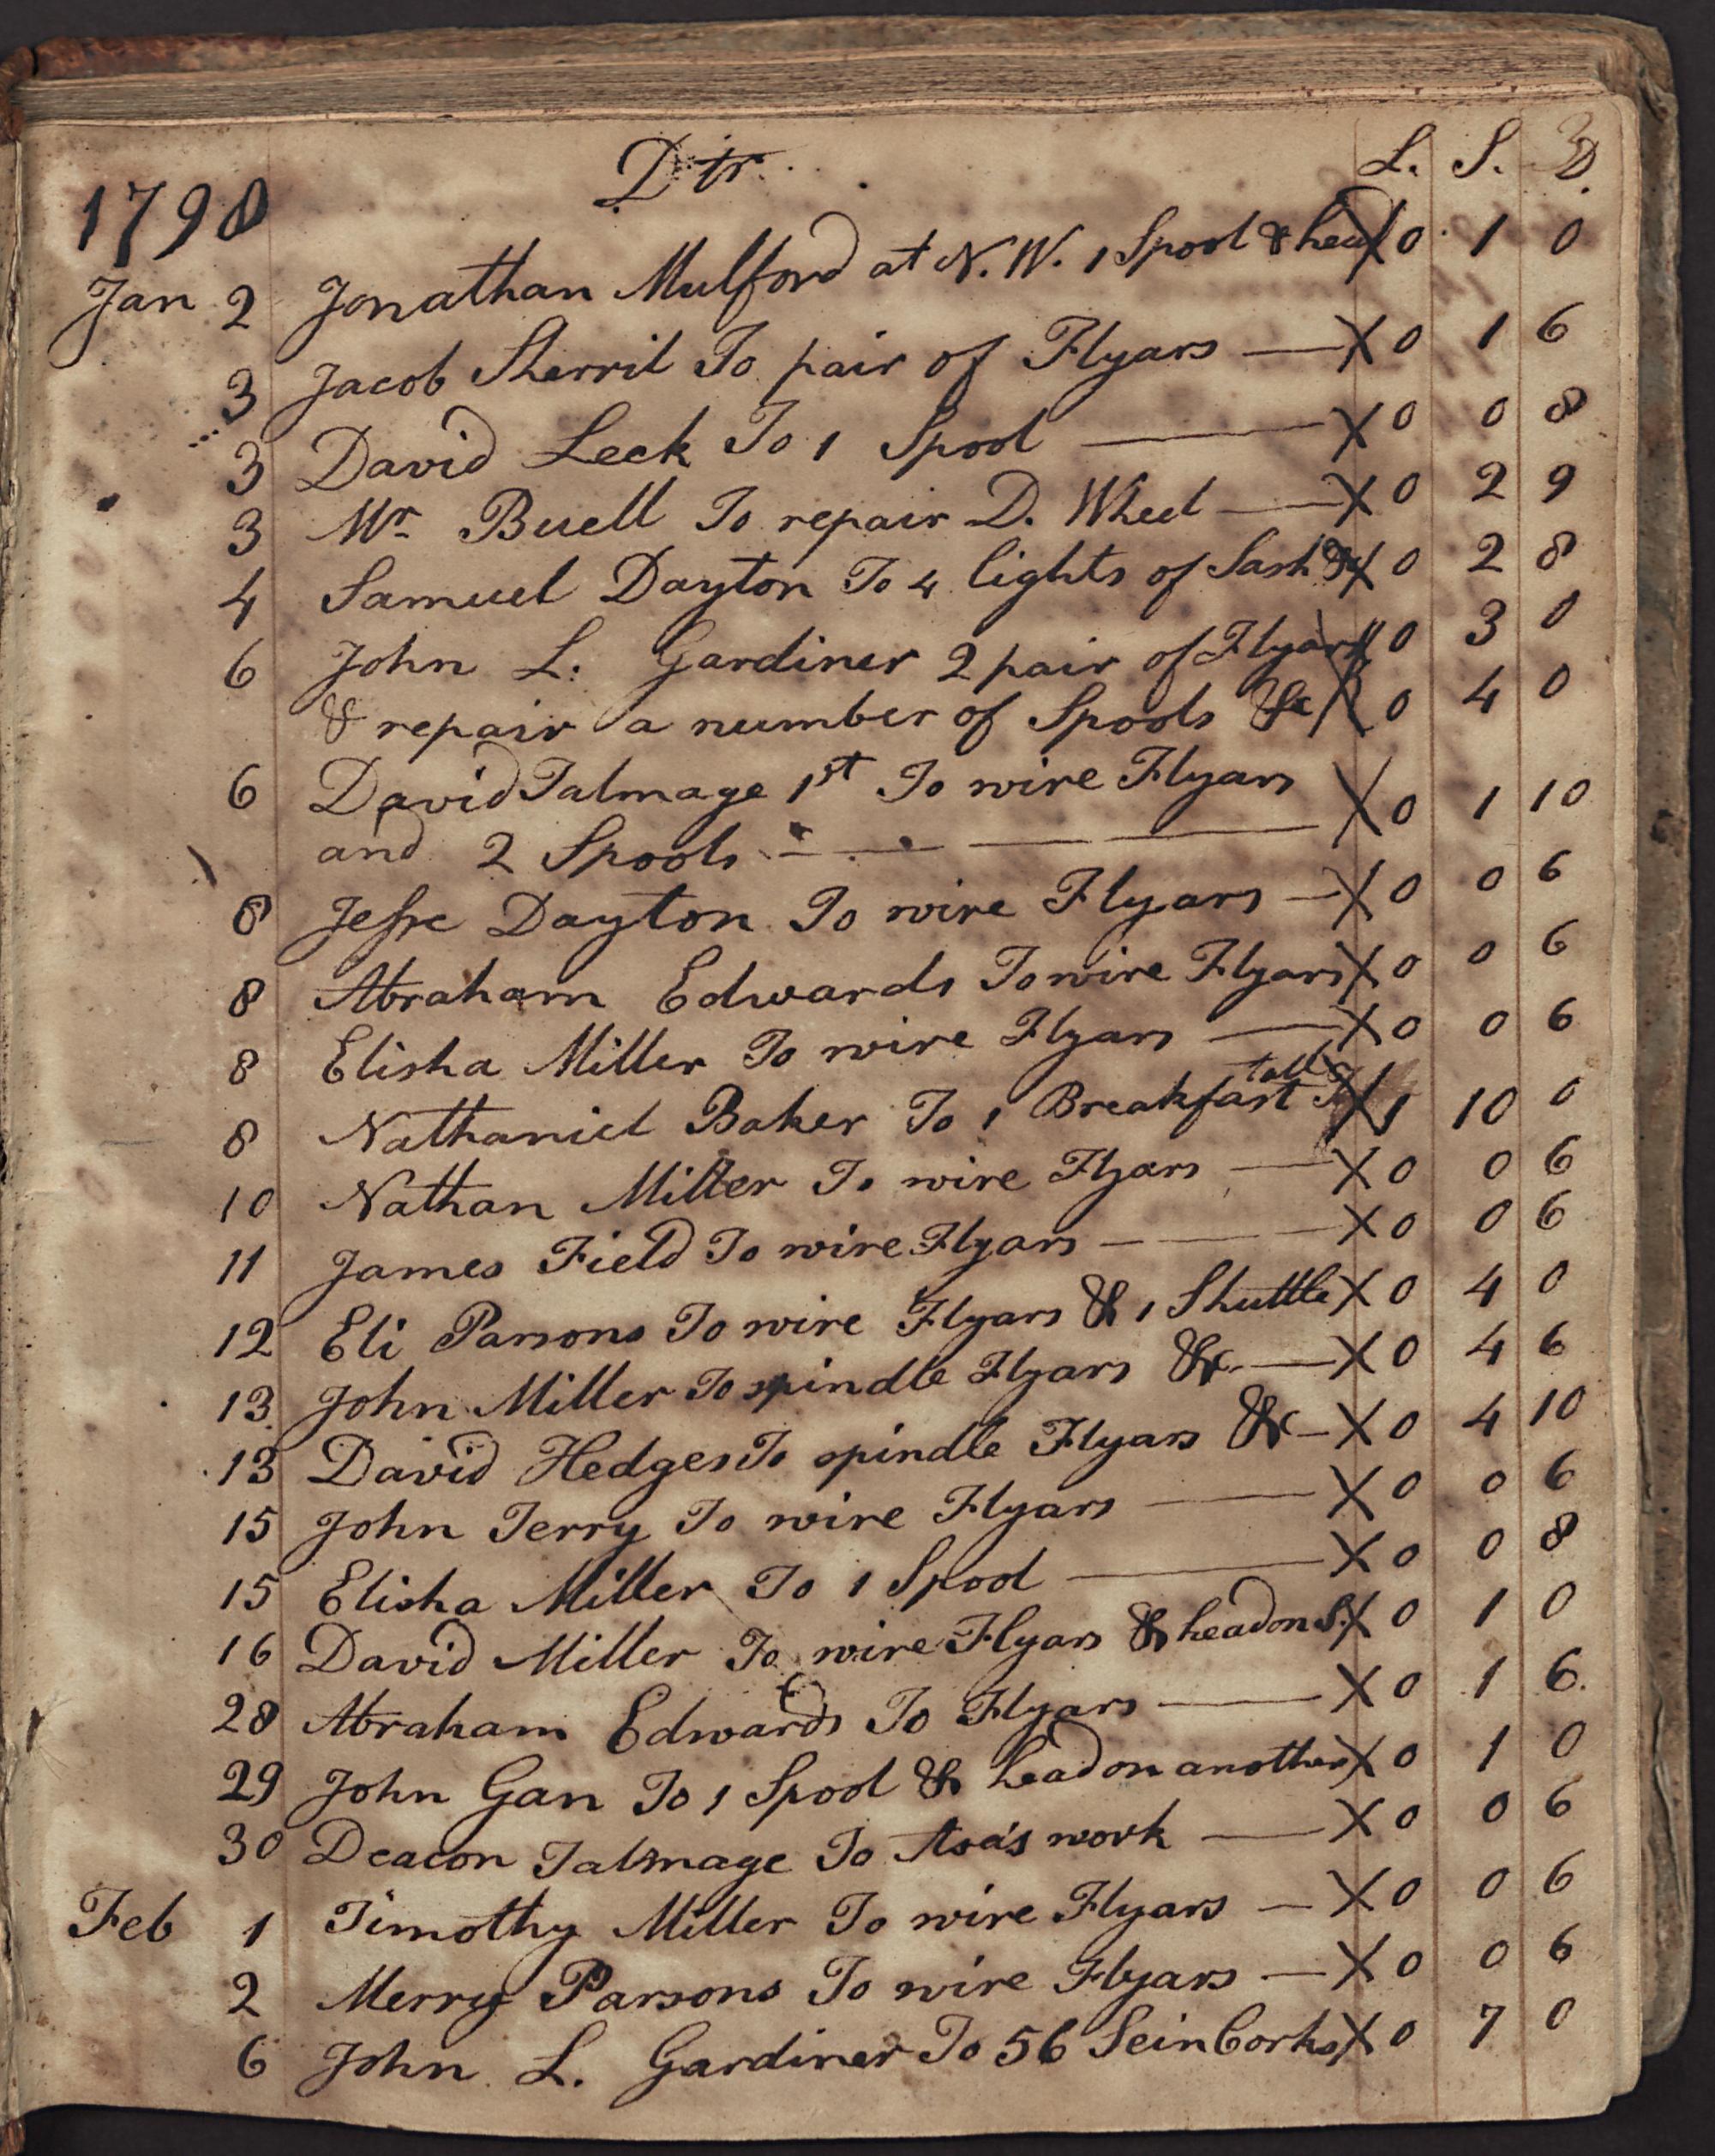 Dtr. L. S. D.
1798
Jan 2 Jonathan Mulford at N.W. 1 Spool & head X 0 1 0
3 Jacob Sherril To pair of Flyars — X 0 1 6
3 David Leek To 1 Spool — X 0 0 8
3 Mr Buell To repair D. Wheel — X 0 2 9
4 Samuel Dayton To 4 lights of Sash X 0 2 8
6 John L. Gardiner 2 pair of Flyars X 0 3 0
& repair a number of Spools &c X 0 4 0
6 David Talmage 1st To wire Flyars
and 2 Spools — X 0 1 10
8 Jesse Dayton To wire Flyars — X 0 0 6
8 Abraham Edwards To wire Flyars X 0 0 6
8 Elisha Miller To wire Flyars — X 0 0 6
8 Nathaniel Baker To 1 Breakfast X 1 10 0
10 Nathan Miller To wire Flyars — X 0 0 6
11 James Field To wire Flyars — X 0 0 6
12 Eli Parsons To wire Flyars & 1 Shuttle X 0 4 0
13 John Miller To spindle Flyars &c — X 0 4 6
13 David Hedges To spindle Flyars &c — X 0 4 10
15 John Terry To wire Flyars — X 0 0 6
15 Elisha Miller To 1 Spool — X 0 0 8
16 David Miller To wire Flyars & head on S. X 0 1 0
28 Abraham Edwards To Flyars — X 0 1 6
29 John Gan To 1 Spool & head on another X 0 1 0
30 Deacon Talmage To Asa's work — X 0 0 6
Feb 1 Timothy Miller To wire Flyars — X 0 0 6
2 Merry Parsons To wire Flyars — X 0 0 6
6 John L. Gardiner To 56 Sein Corks X 0 7 0